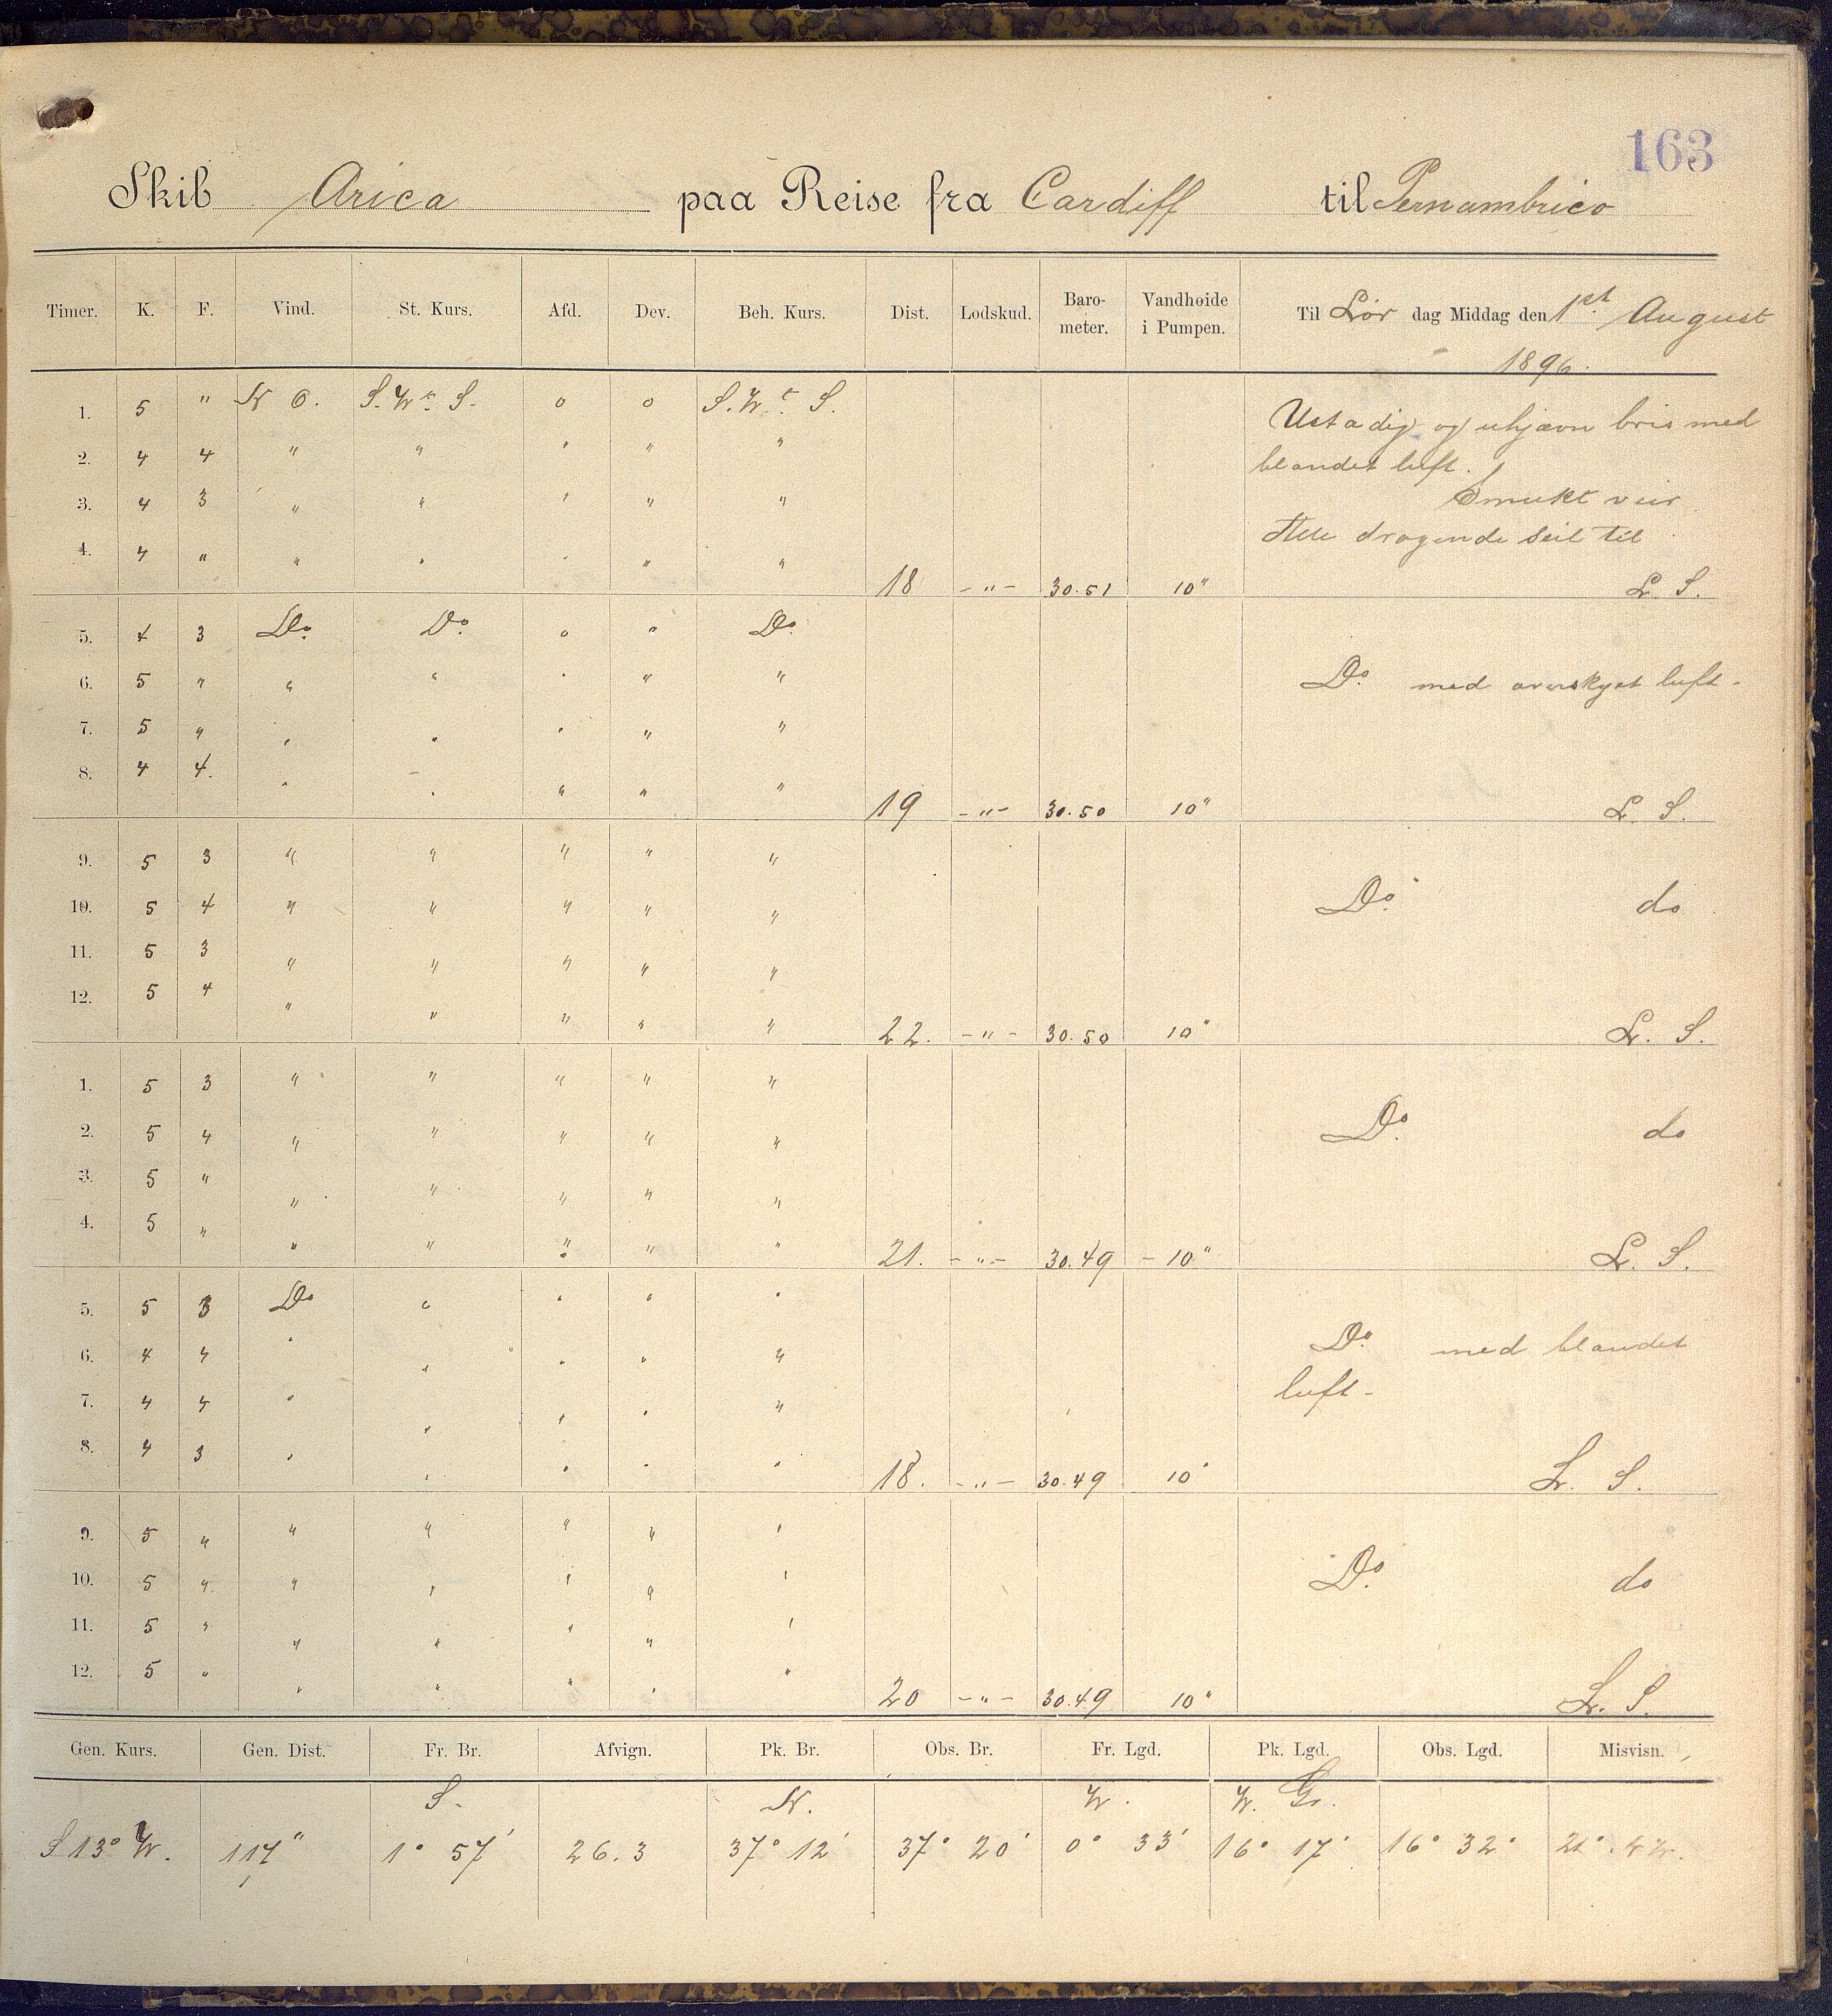 163
Skib Arica paa Reise fra Cardiff til Pernambuco
Timer. K. F. Vind. St. Kurs. Afd. Dev. Beh. Kurs. Dist. Lodskud. Baro-meter. Vandhøide i Pumpen. Til Lør dag Middag den 1st August
1896.
1. 5 " N O. S.W.t S. o o S.W.t S. Ustadig og ujævn bris med
2. 4 4 " " " " " blandet luft.
3. 4 3 " " " " " Smukt veir
4. 4 " " " " " " Alle dragende Seil til
18 - " - 30.51 10" L. S.
5. 4 3 Do. Do. o " Do.
6. 5 " " " " " " Do. med overskyet luft.
7. 5 " " " " " "
8. 4 4. " " " " "
19 - " - 30.50 10" L. S.
9. 5 3 " " " " "
10. 5 4 " " " " " Do. do
11. 5 3 " " " " "
12. 5 4 " " " " "
22. - " - 30.50 10" L. S.
1. 5 3 " " " " "
2. 5 4 " " " " " Do. do
3. 5 " " " " " "
4. 5 " " " " " "
21. - " - 30.49 - 10" L. S.
5. 5 3 Do " " " "
6. 4 4 " " " " " Do. med blandet
7. 4 4 " " " " " luft -
8. 4 3 " " " " "
18. - " - 30.49 10" L. S.
9. 5 " " " " " "
10. 5 " " " " " " Do. do
11. 5 " " " " " "
12. 5 " " " " " "
20 - " - 30.49 10" L. S.
Gen. Kurs. Gen. Dist. Fr. Br. Afvign. Pk. Br. Obs. Br. Fr. Lgd. Pk. Lgd. Obs. Lgd. Misvisn.
S. N. W. W. Gr.
S 13° W. 117" 1° 57' 26.3 37° 12' 37° 20' 0° 33' 16° 17' 16° 32' 21°